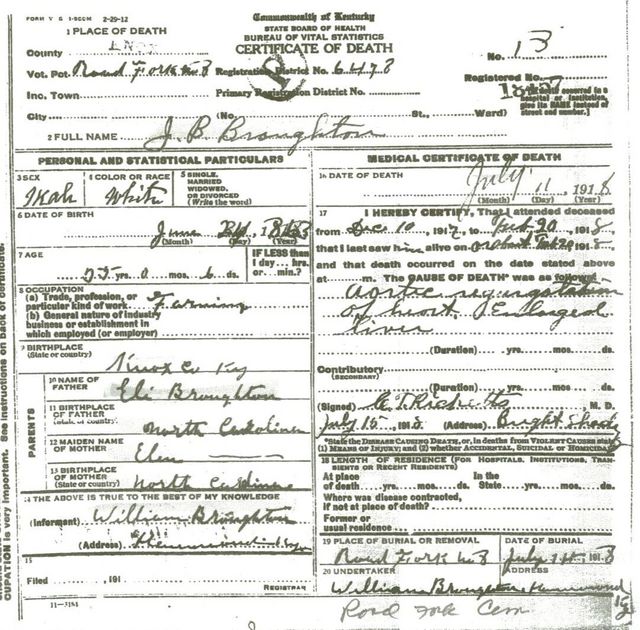 FORM V S 1-50M 2-29-12
Commonwealth of Kentucky
STATE BOARD OF HEALTH
BUREAU OF VITAL STATISTICS
CERTIFICATE OF DEATH
1 PLACE OF DEATH
County Knox
No. 13
Vot. Pct. Road Fork No 8 Registration District No. 6478
Registered No.
Inc. Town Primary Registration District No.
[If death occurred in a hospital or institution, give its NAME instead of street and number.]
City (No. St., Ward)
2 FULL NAME J. B. Broughton
PERSONAL AND STATISTICAL PARTICULARS
3 SEX
Male
4 COLOR OR RACE
White
5 SINGLE, MARRIED WIDOWED, OR DIVORCED (Write the word)
6 DATE OF BIRTH
June
(Month) (Day) (Year)
7 AGE
yrs. 0 mos. 6 ds.
IF LESS than 1 day hrs. or min.?
8 OCCUPATION
(a) Trade, profession, or particular kind of work Farming
(b) General nature of industry
business or establishment in
which employed (or employer)
9 BIRTHPLACE
(State or country) Knox Co Ky
PARENTS
10 NAME OF FATHER Eli Broughton
11 BIRTHPLACE OF FATHER
(State or country) North Carolina
12 MAIDEN NAME OF MOTHER
13 BIRTHPLACE OF MOTHER
(State or country) North Carolina
14 THE ABOVE IS TRUE TO THE BEST OF MY KNOWLEDGE
(Informant) William Broughton
(Address)
15
Filed 191
REGISTRAR
11-3184
MEDICAL CERTIFICATE OF DEATH
16 DATE OF DEATH
July 11, 1918
(Month) (Day) (Year)
17 I HEREBY CERTIFY, That I attended deceased
from Dec 10, 191 to Feb 20, 1918
that I last saw him alive on about Feb 20, 1918
and that death occurred on the date stated above
at m. The CAUSE OF DEATH* was as follows
Aortic regurgitation
of heart Enlarged
liver
(Duration) yrs. mos. ds.
Contributory
(SECONDARY)
(Duration) yrs. mos. ds.
(Signed) Ricketts M. D.
July 15, 1918 (Address) Bright Shade
*State the DISEASE CAUSING DEATH, or, in deaths from VIOLENT CAUSES state
(1) MEANS OF INJURY; and (2) whether ACCIDENTAL, SUICIDAL or HOMICIDAL
18 LENGTH OF RESIDENCE (FOR HOSPITALS, INSTITUTIONS, TRANSIENTS OR RECENT RESIDENTS)
At place of death yrs. mos. ds. In the State yrs. mos. ds.
Where was disease contracted,
if not at place of death?
Former or
usual residence
19 PLACE OF BURIAL OR REMOVAL
Road Fork No 8
DATE OF BURIAL
July 1918
20 UNDERTAKER
William Broughton
ADDRESS
Hammond
Road Fork Cem
CUPATION is very important. See instructions on back of certificate.